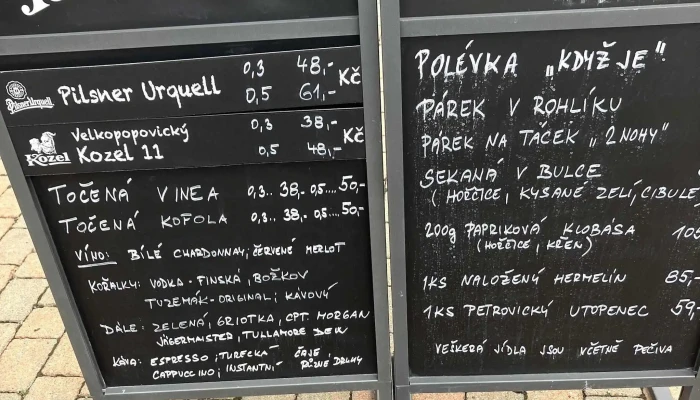 Pilsner Urquell 0,3 48,- Kč
0,5 61,-
Velkopopovický 0,3 38,- Kč
Kozel Kozel 11 0,5 48,-
TOČENÁ VINEA 0,3.. 38,- 0,5.... 50,-
TOČENÁ KOFOLA 0,3.. 38,- 0,5.... 50,-
VÍNO: BÍLÉ CHARDONNAY; ČERVENÉ MERLOT
KOŘALKY: VODKA - FINSKÁ, BOŽKOV
TUZEMÁK - ORIGINAL; KÁVOVÝ
DÁLE: ZELENÁ, GRIOTKA, CPT MORGAN
JÄGERMAISTER, TULLAMORE DEW
KÁVA: ESPRESSO; TURECKÁ ČAJE
CAPPUCCINO; INSTANTNÍ RŮZNÉ DRUHY
POLÉVKA „KDYŽ JE"
PÁREK V ROHLÍKU
PÁREK NA TÁCEK „2 NOHY"
SEKANÁ V BULCE
(HOŘČICE, KYSANÉ ZELÍ, CIBULE
200g PAPRIKOVÁ KLOBÁSA 105
(HOŘČICE, KŘEN)
1KS NALOŽENÝ HERMELÍN 85,-
1KS PETROVICKÝ UTOPENEC 59,-
VEŠKERÁ JÍDLA JSOU VČETNĚ PEČIVA